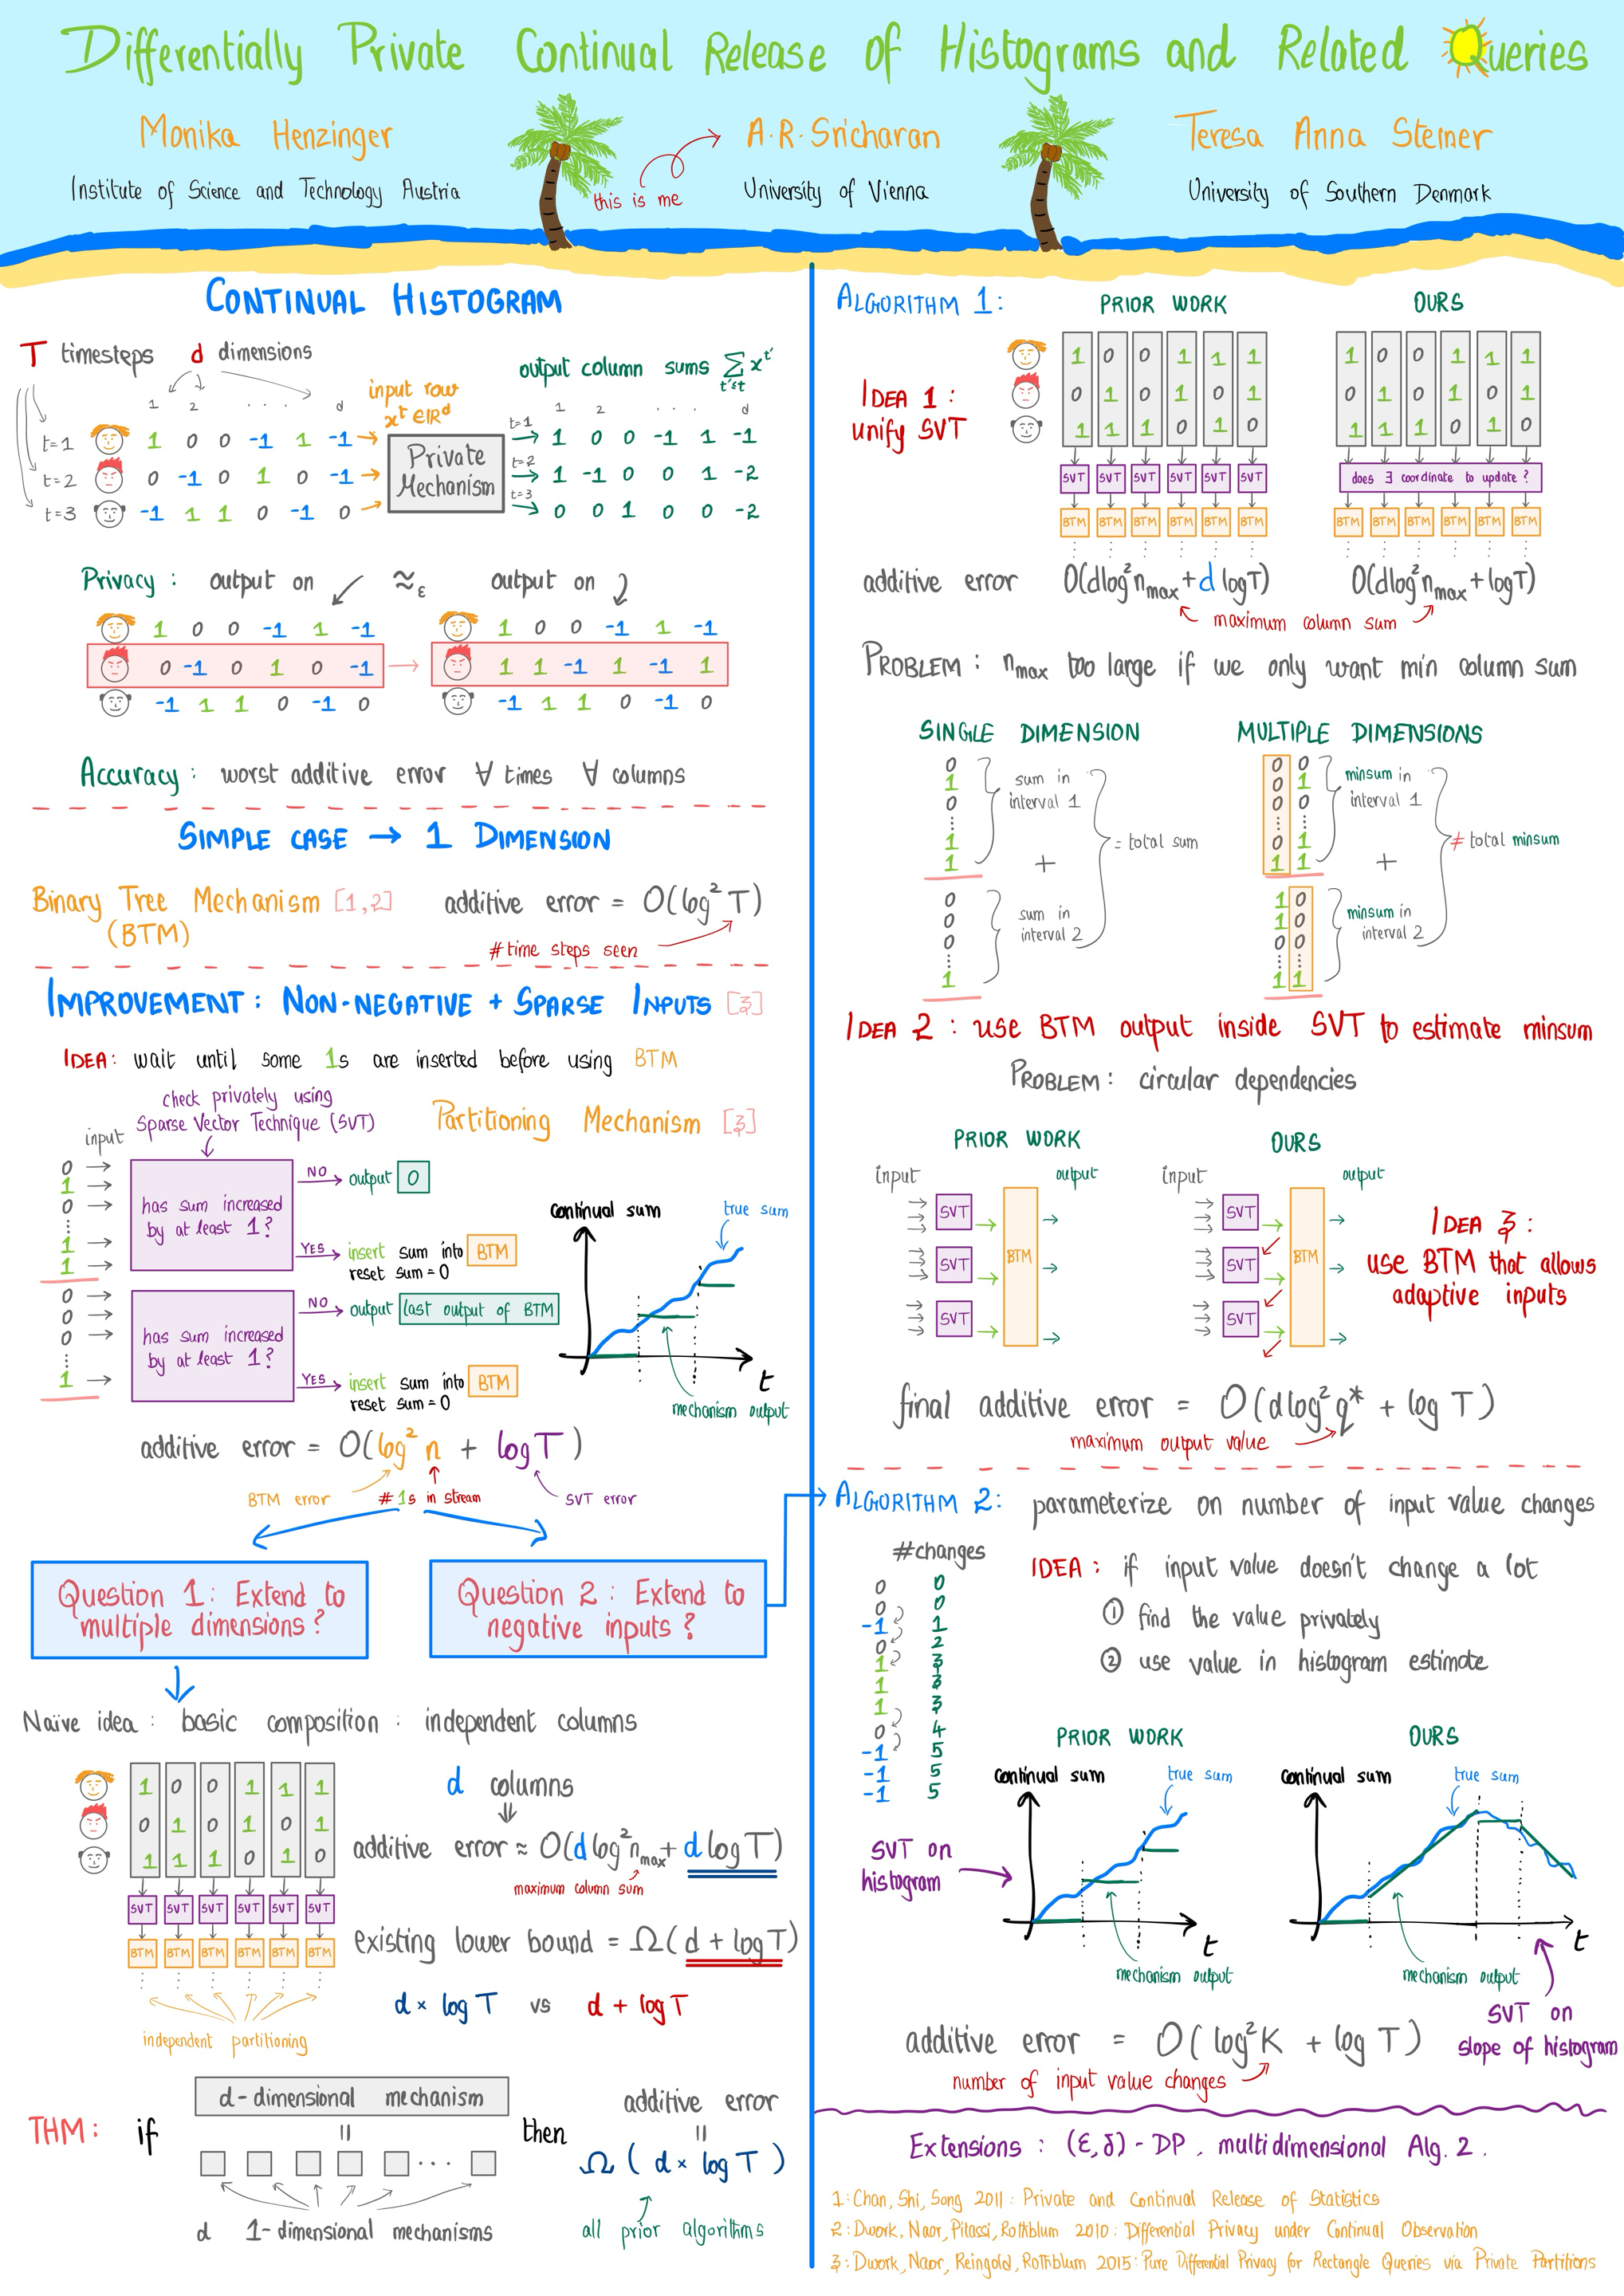 Differentially Private Continual Release of Histograms and Related Queries
Monika Henzinger
Institute of Science and Technology Austria
this is me
A.R.Sricharan
University of Vienna
Teresa Anna Steiner
University of Southern Denmark
CONTINUAL HISTOGRAM
T timesteps d dimensions
1 2 . . . d
input row
xᵗ ∈ ℝᵈ
output column sums Σ_{t'≤t} x^{t'}
1 2 . . . d
t=1 1 0 0 -1 1 -1
t=2 0 -1 0 1 0 -1
t=3 -1 1 1 0 -1 0
Private
Mechanism
t=1 1 0 0 -1 1 -1
t=2 1 -1 0 0 1 -2
t=3 0 0 1 0 0 -2
Privacy : output on ≈ε output on
1 0 0 -1 1 -1
0 -1 0 1 0 -1
-1 1 1 0 -1 0
1 0 0 -1 1 -1
1 1 -1 1 -1 1
-1 1 1 0 -1 0
Accuracy : worst additive error ∀ times ∀ columns
SIMPLE CASE → 1 DIMENSION
Binary Tree Mechanism [1,2]
(BTM)
additive error = O(log² T)
#time steps seen
IMPROVEMENT : NON-NEGATIVE + SPARSE INPUTS [3]
IDEA: wait until some 1s are inserted before using BTM
check privately using
Sparse Vector Technique (SVT)
Partitioning Mechanism [3]
input
0
1
0
⋮
1
1
has sum increased
by at least 1?
NO output 0
YES insert sum into BTM
reset sum = 0
0
0
0
⋮
1
has sum increased
by at least 1?
NO output last output of BTM
YES insert sum into BTM
reset sum = 0
continual sum
true sum
t
mechanism output
additive error = O(log² n + log T)
BTM error
#1s in stream
SVT error
Question 1: Extend to
multiple dimensions?
Question 2: Extend to
negative inputs?
Naïve idea : basic composition : independent columns
1 0 0 1 1 1
0 1 0 1 0 1
1 1 1 0 1 0
SVT SVT SVT SVT SVT SVT
BTM BTM BTM BTM BTM BTM
independent partitioning
d columns
⇓
additive error ≈ O(d log² n_max + d log T)
maximum column sum
existing lower bound = Ω(d + log T)
d × log T vs d + log T
THM: if
d-dimensional mechanism
=
. . .
d 1-dimensional mechanisms
then
additive error
=
Ω ( d × log T )
all prior algorithms
ALGORITHM 1:
PRIOR WORK
OURS
IDEA 1 :
unify SVT
1 0 0 1 1 1
0 1 0 1 0 1
1 1 1 0 1 0
SVT SVT SVT SVT SVT SVT
BTM BTM BTM BTM BTM BTM
1 0 0 1 1 1
0 1 0 1 0 1
1 1 1 0 1 0
does ∃ coordinate to update ?
BTM BTM BTM BTM BTM BTM
additive error O(dlog² n_max + d log T) O(dlog² n_max + log T)
maximum column sum
PROBLEM : n_max too large if we only want min column sum
SINGLE DIMENSION
0
1
0
⋮
1
1
sum in
interval 1
+
0
0
0
⋮
1
sum in
interval 2
= total sum
MULTIPLE DIMENSIONS
0 0
0 1
0 0
⋮ ⋮
0 1
1 1
minsum in
interval 1
+
1 0
1 0
0 0
⋮ ⋮
1 1
minsum in
interval 2
≠ total minsum
IDEA 2 : use BTM output inside SVT to estimate minsum
PROBLEM : circular dependencies
PRIOR WORK
input
output
SVT
SVT
SVT
BTM
OURS
input
output
SVT
SVT
SVT
BTM
IDEA 3 :
use BTM that allows
adaptive inputs
final additive error = O(dlog² q* + log T)
maximum output value
ALGORITHM 2: parameterize on number of input value changes
#changes
0 0
0 0
-1 1
0 2
1 3
1 3
1 3
0 4
-1 5
-1 5
-1 5
IDEA : if input value doesn't change a lot
① find the value privately
② use value in histogram estimate
PRIOR WORK
continual sum
true sum
t
mechanism output
SVT on
histogram
OURS
continual sum
true sum
t
mechanism output
SVT on
slope of histogram
additive error = O( log² K + log T )
number of input value changes
Extensions : (ε,δ) - DP , multidimensional Alg. 2 .
1: Chan, Shi, Song 2011 : Private and Continual Release of Statistics
2: Dwork, Naor, Pitassi, Rothblum 2010 : Differential Privacy under Continual Observation
3: Dwork, Naor, Reingold, Rothblum 2015: Pure Differential Privacy for Rectangle Queries via Private Partitions